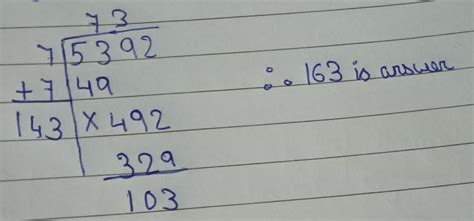 73
7 5392
+7 49
143 × 492
329
103
∴ 163 is answer